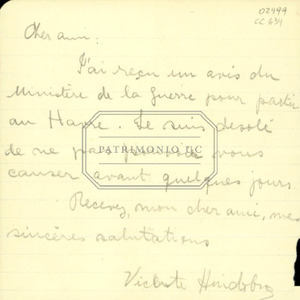 02499
CC 631
Cher ami:
J'ai reçu un avis du
Ministère de la Guerre pour partir
au Havre. Je suis desolé
de ne pas pouvoir vous
causer avant quelques jours
PATRIMONIO UC
Recevez, mon cher ami, mes
sincères salutations
Vicente Huidobro